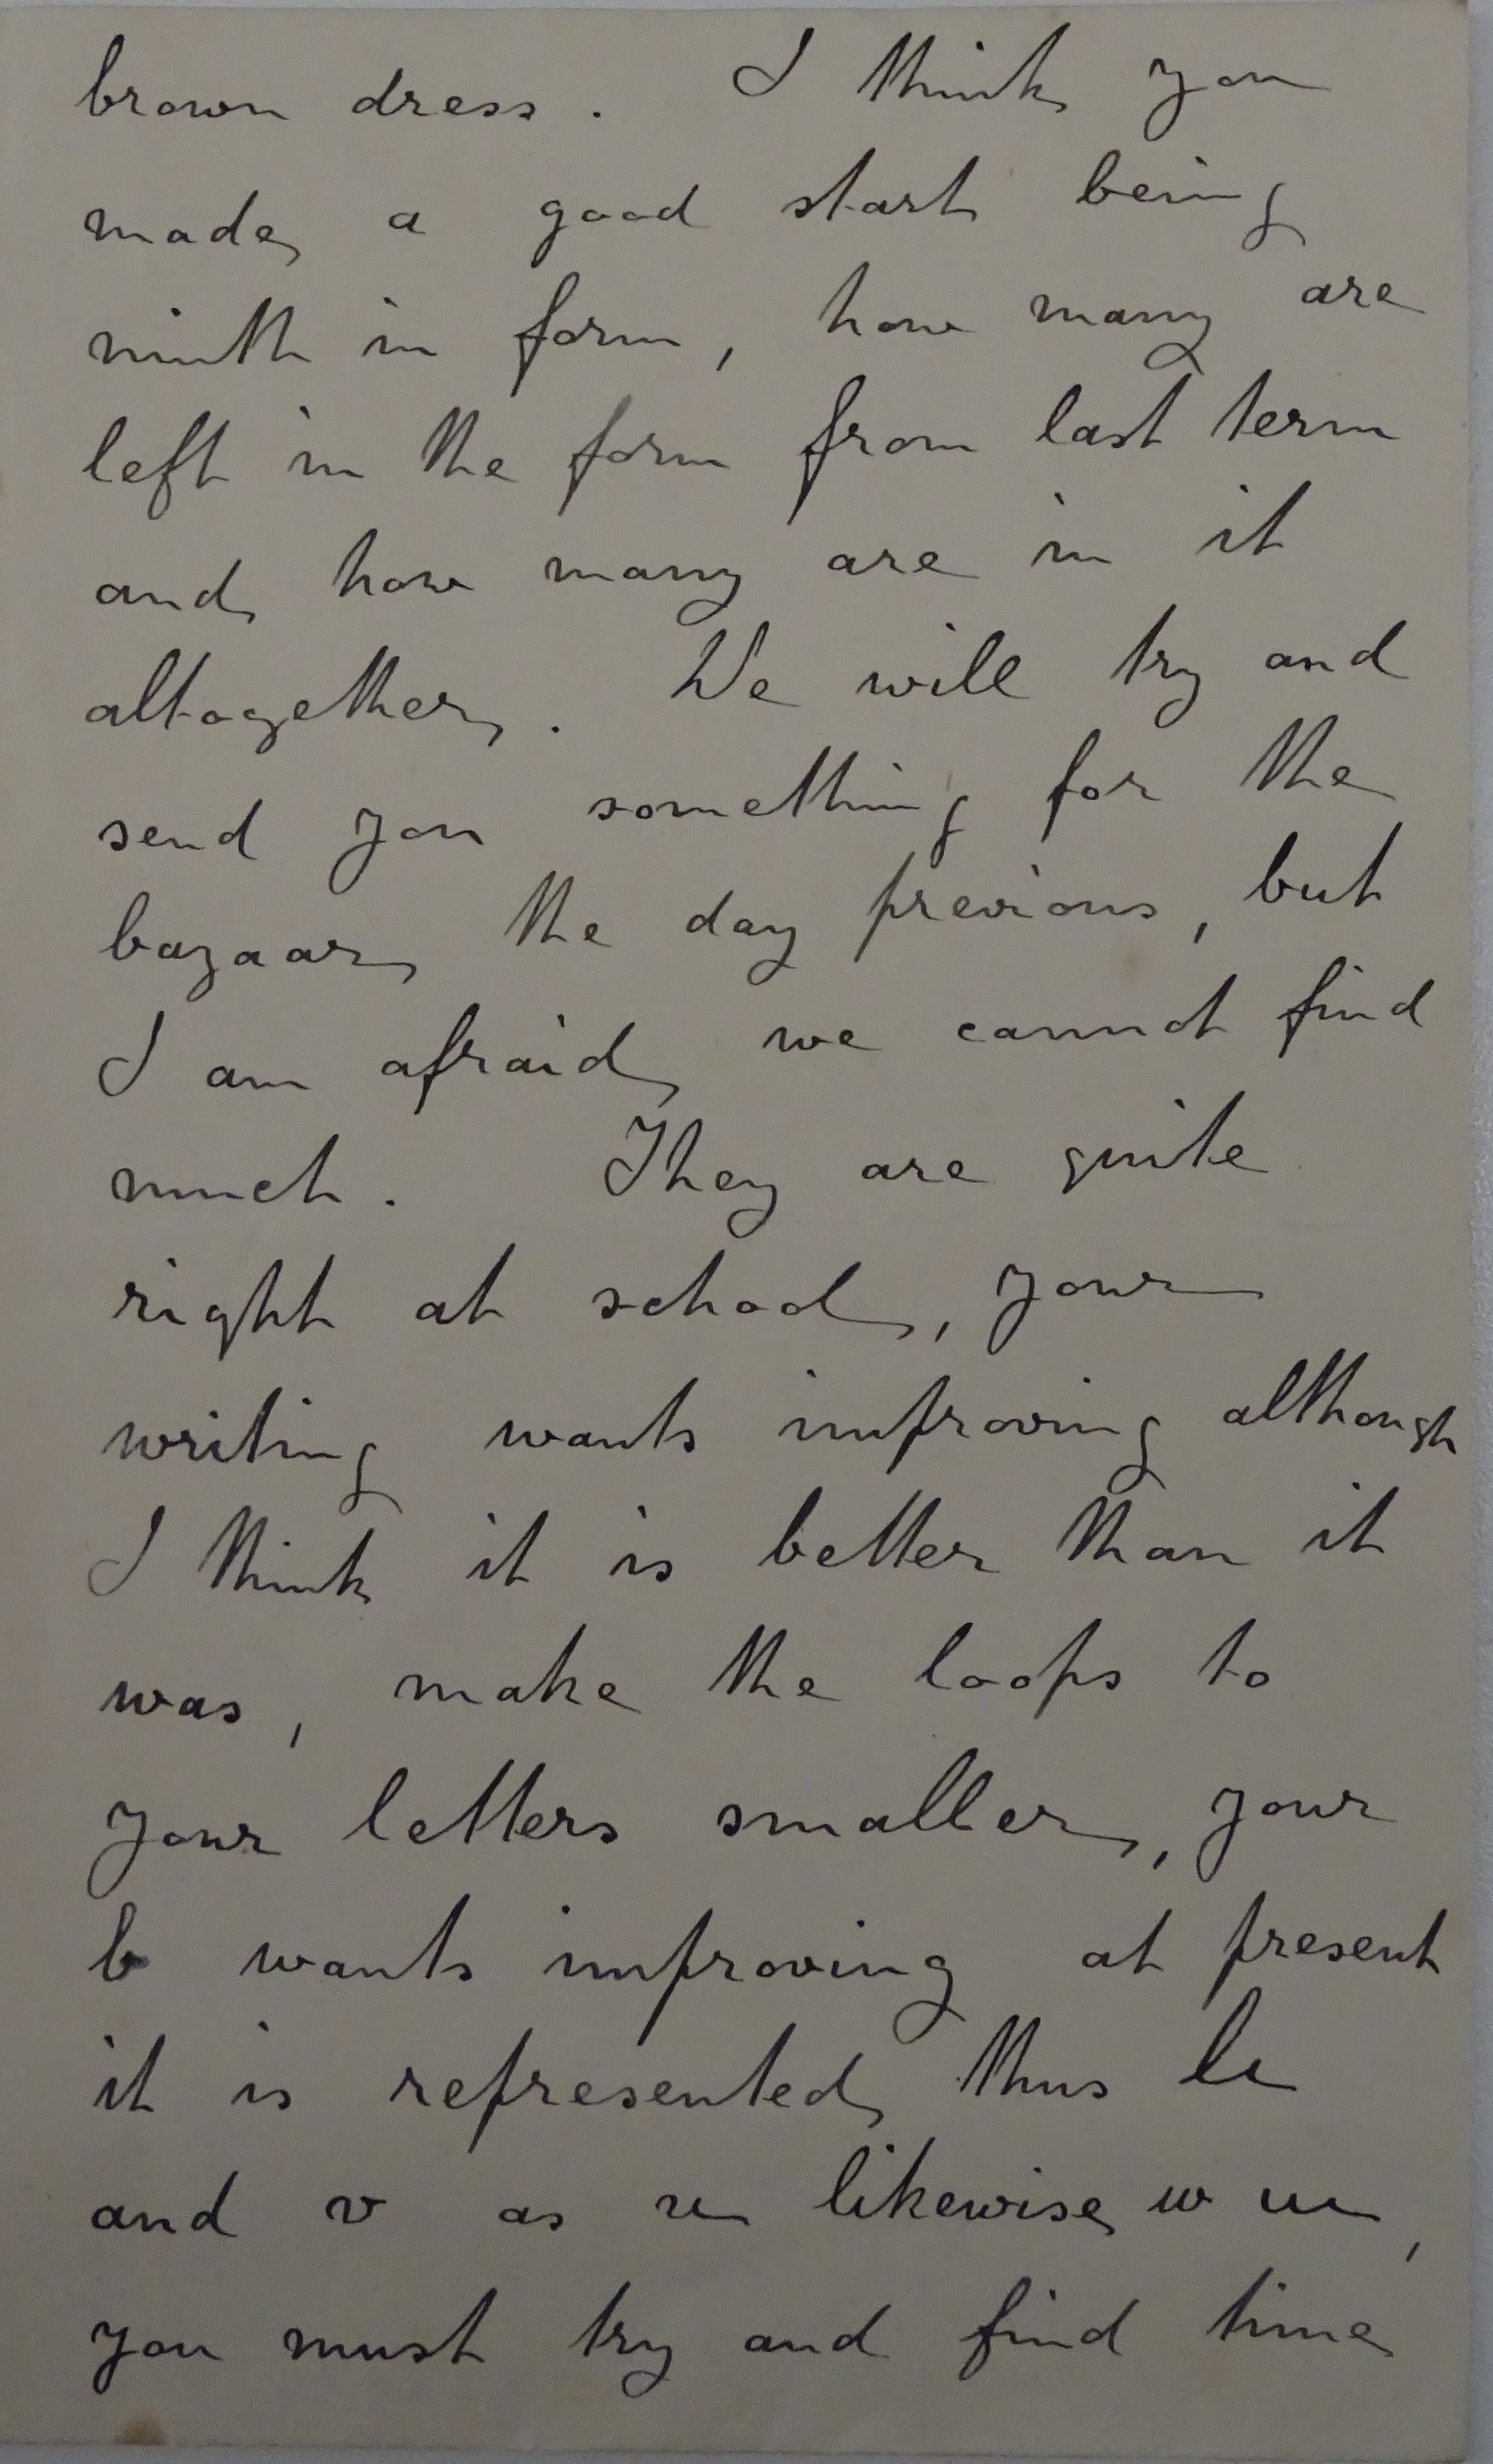 brown dress. I think you
made a good start being
ninth in form, how many are
left in the form from last term
and how many are in it
altogether. We will try and
send you something for the
bazaar the day previous, but
I am afraid we cannot find
much. They are quite
right at school, your
writing wants improving although
I think it is better than it
was, make the loops to
your letters smaller, your
b wants improving at present
it is represented thus le
and v as u likewise w uu,
you must try and find time